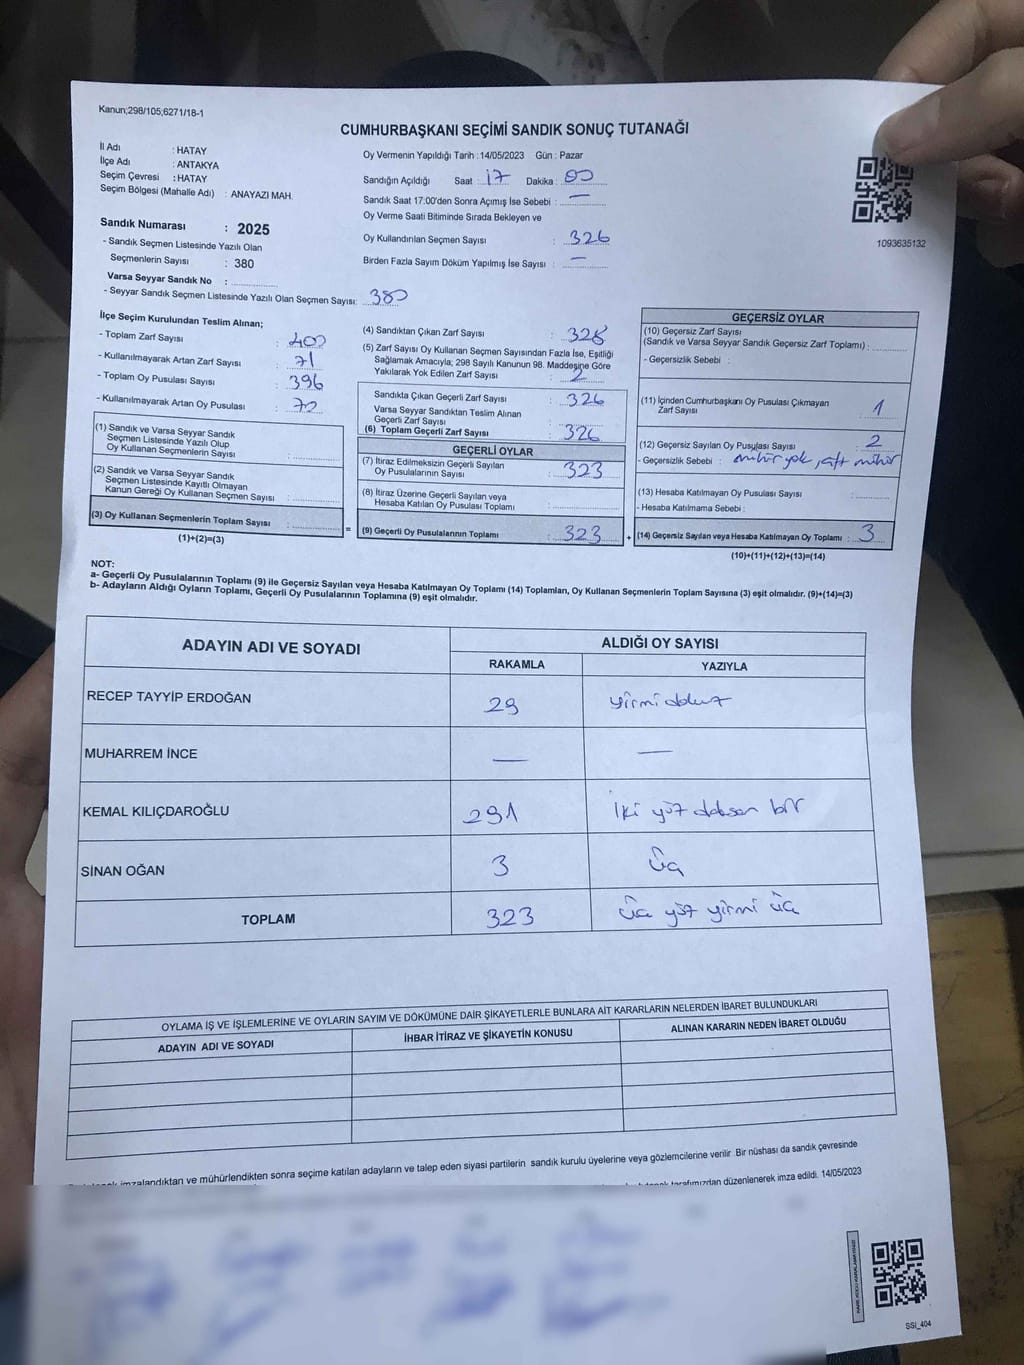 Kanun;298/105;6271/18-1
CUMHURBAŞKANI SEÇİMİ SANDIK SONUÇ TUTANAĞI
İl Adı : HATAY
İlçe Adı : ANTAKYA
Seçim Çevresi : HATAY
Seçim Bölgesi (Mahalle Adı) : ANAYAZI MAH.
Oy Vermenin Yapıldığı Tarih : 14/05/2023 Gün : Pazar
Sandığın Açıldığı Saat : 17 Dakika : 00
Sandık Saat 17:00'den Sonra Açımış İse Sebebi : —
Oy Verme Saati Bitiminde Sırada Bekleyen ve
Oy Kullandırılan Seçmen Sayısı : 326
Birden Fazla Sayım Döküm Yapılmış İse Sayısı : —
1093635132
Sandık Numarası : 2025
- Sandık Seçmen Listesinde Yazılı Olan
Seçmenlerin Sayısı : 380
Varsa Seyyar Sandık No :
- Seyyar Sandık Seçmen Listesinde Yazılı Olan Seçmen Sayısı: 380
İlçe Seçim Kurulundan Teslim Alınan;
- Toplam Zarf Sayısı : 400
- Kullanılmayarak Artan Zarf Sayısı : 71
- Toplam Oy Pusulası Sayısı : 396
- Kullanılmayarak Artan Oy Pusulası : 70
(1) Sandık ve Varsa Seyyar Sandık
Seçmen Listesinde Yazılı Olup
Oy Kullanan Seçmenlerin Sayısı :
(2) Sandık ve Varsa Seyyar Sandık
Seçmen Listesinde Kayıtlı Olmayan
Kanun Gereği Oy Kullanan Seçmen Sayısı :
(3) Oy Kullanan Seçmenlerin Toplam Sayısı : =
(1)+(2)=(3)
(4) Sandıktan Çıkan Zarf Sayısı : 328
(5) Zarf Sayısı Oy Kullanan Seçmen Sayısından Fazla İse, Eşitliği
Sağlamak Amacıyla; 298 Sayılı Kanunun 98. Maddesine Göre
Yakılarak Yok Edilen Zarf Sayısı : 2
Sandıkta Çıkan Geçerli Zarf Sayısı : 326
Varsa Seyyar Sandıktan Teslim Alınan
Geçerli Zarf Sayısı :
(6) Toplam Geçerli Zarf Sayısı : 326
GEÇERLİ OYLAR
(7) İtiraz Edilmeksizin Geçerli Sayılan
Oy Pusulalarının Sayısı : 323
(8) İtiraz Üzerine Geçerli Sayılan veya
Hesaba Katılan Oy Pusulası Toplamı :
(9) Geçerli Oy Pusulalarının Toplamı : 323 +
GEÇERSİZ OYLAR
(10) Geçersiz Zarf Sayısı
(Sandık ve Varsa Seyyar Sandık Geçersiz Zarf Toplamı) :
- Geçersizlik Sebebi :
(11) İçinden Cumhurbaşkanı Oy Pusulası Çıkmayan
Zarf Sayısı : 1
(12) Geçersiz Sayılan Oy Pusulası Sayısı : 2
- Geçersizlik Sebebi : mühür yok, çift mühür
(13) Hesaba Katılmayan Oy Pusulası Sayısı :
- Hesaba Katılmama Sebebi :
(14) Geçersiz Sayılan veya Hesaba Katılmayan Oy Toplamı : 3
(10)+(11)+(12)+(13)=(14)
NOT:
a- Geçerli Oy Pusulalarının Toplamı (9) ile Geçersiz Sayılan veya Hesaba Katılmayan Oy Toplamı (14) Toplamları, Oy Kullanan Seçmenlerin Toplam Sayısına (3) eşit olmalıdır. (9)+(14)=(3)
b- Adayların Aldığı Oyların Toplamı, Geçerli Oy Pusulalarının Toplamına (9) eşit olmalıdır.
ADAYIN ADI VE SOYADI ALDIĞI OY SAYISI
RAKAMLA YAZIYLA
RECEP TAYYİP ERDOĞAN 29 yirmi dokuz
MUHARREM İNCE — —
KEMAL KILIÇDAROĞLU 291 iki yüz doksan bir
SİNAN OĞAN 3 üç
TOPLAM 323 üç yüz yirmi üç
OYLAMA İŞ VE İŞLEMLERİNE VE OYLARIN SAYIM VE DÖKÜMÜNE DAİR ŞİKAYETLERLE BUNLARA AİT KARARLARIN NELERDEN İBARET BULUNDUKLARI
ADAYIN ADI VE SOYADI İHBAR İTİRAZ VE ŞİKAYETİN KONUSU ALINAN KARARIN NEDEN İBARET OLDUĞU
imzalandıktan ve mühürlendikten sonra seçime katılan adayların ve talep eden siyasi partilerin sandık kurulu üyelerine veya gözlemcilerine verilir Bir nüshası da sandık çevresinde
tarafımızdan düzenlenerek imza edildi. 14/05/2023
SSİ_404